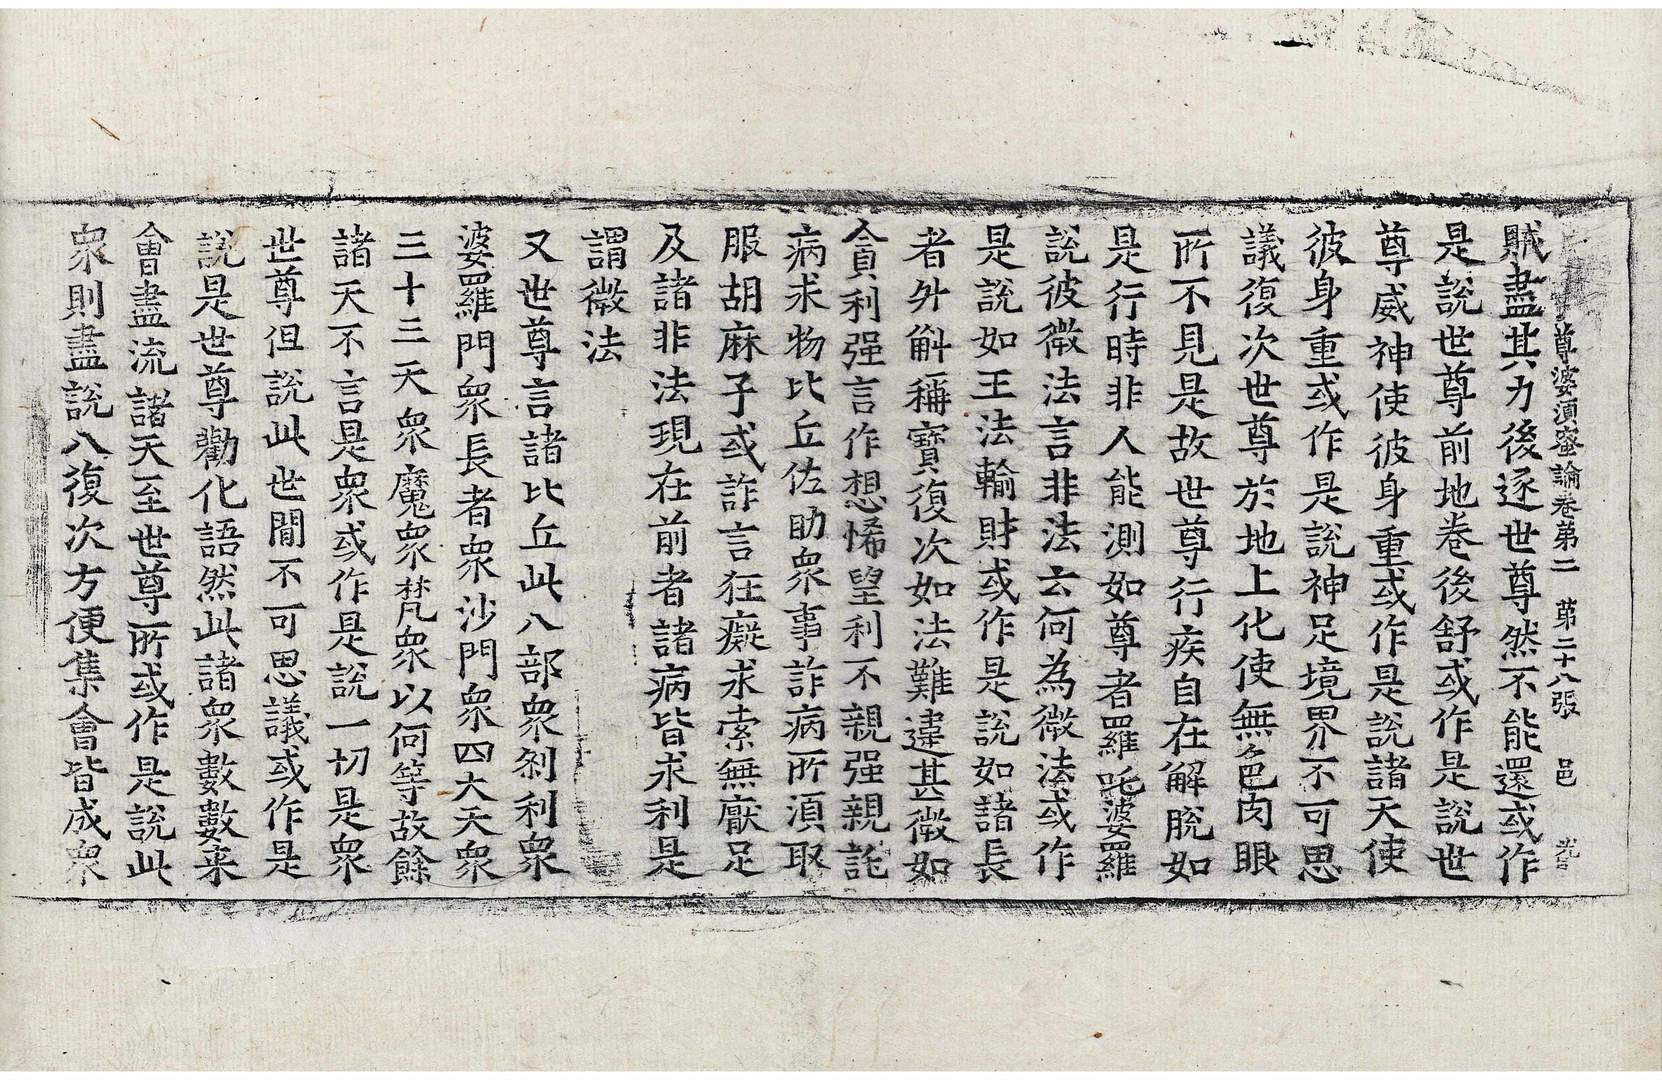 尊婆須蜜論卷第二 第二十八張 邑
賊盡其力後逐世尊然不能還或作
是說世尊前地卷後舒或作是說世
尊威神使彼身重或作是說諸天使
彼身重或作是說神足境界不可思
議復次世尊於地上化使無色肉眼
所不見是故世尊行疾自在解脫如
是行時非人能測如尊者羅吒婆羅
說彼微法言非法云何為微法或作
是說如王法輸財或作是說如諸長
者外斛稱寶復次如法難違甚微如
貪利强言作想悕望利不親强親託
病求物比丘佐助眾事詐病所須取
服胡麻子或詐言狂癡求索無厭足
及諸非法現在前者諸病皆求利是
謂微法
又世尊言諸比丘此八部眾剎利眾
婆羅門眾長者眾沙門眾四大天眾
三十三天眾魔眾梵眾以何等故餘
諸天不言是眾或作是說一切是眾
世尊但說此世間不可思議或作是
說是世尊勸化語然此諸眾數數来
會盡流諸天至世尊所或作是說此
眾則盡說八復次方便集會皆成眾